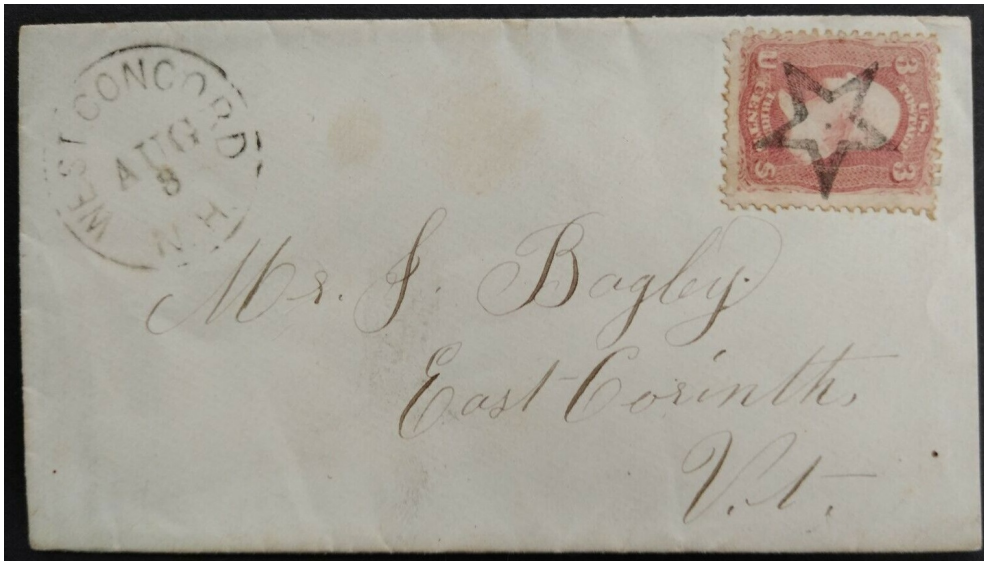 WEST CONCORD
AUG
8
N.H.
U.S. POSTAGE
3 3
THREE CENTS
U S
Mr. J. Bagley.
East Corinth,
V.t.